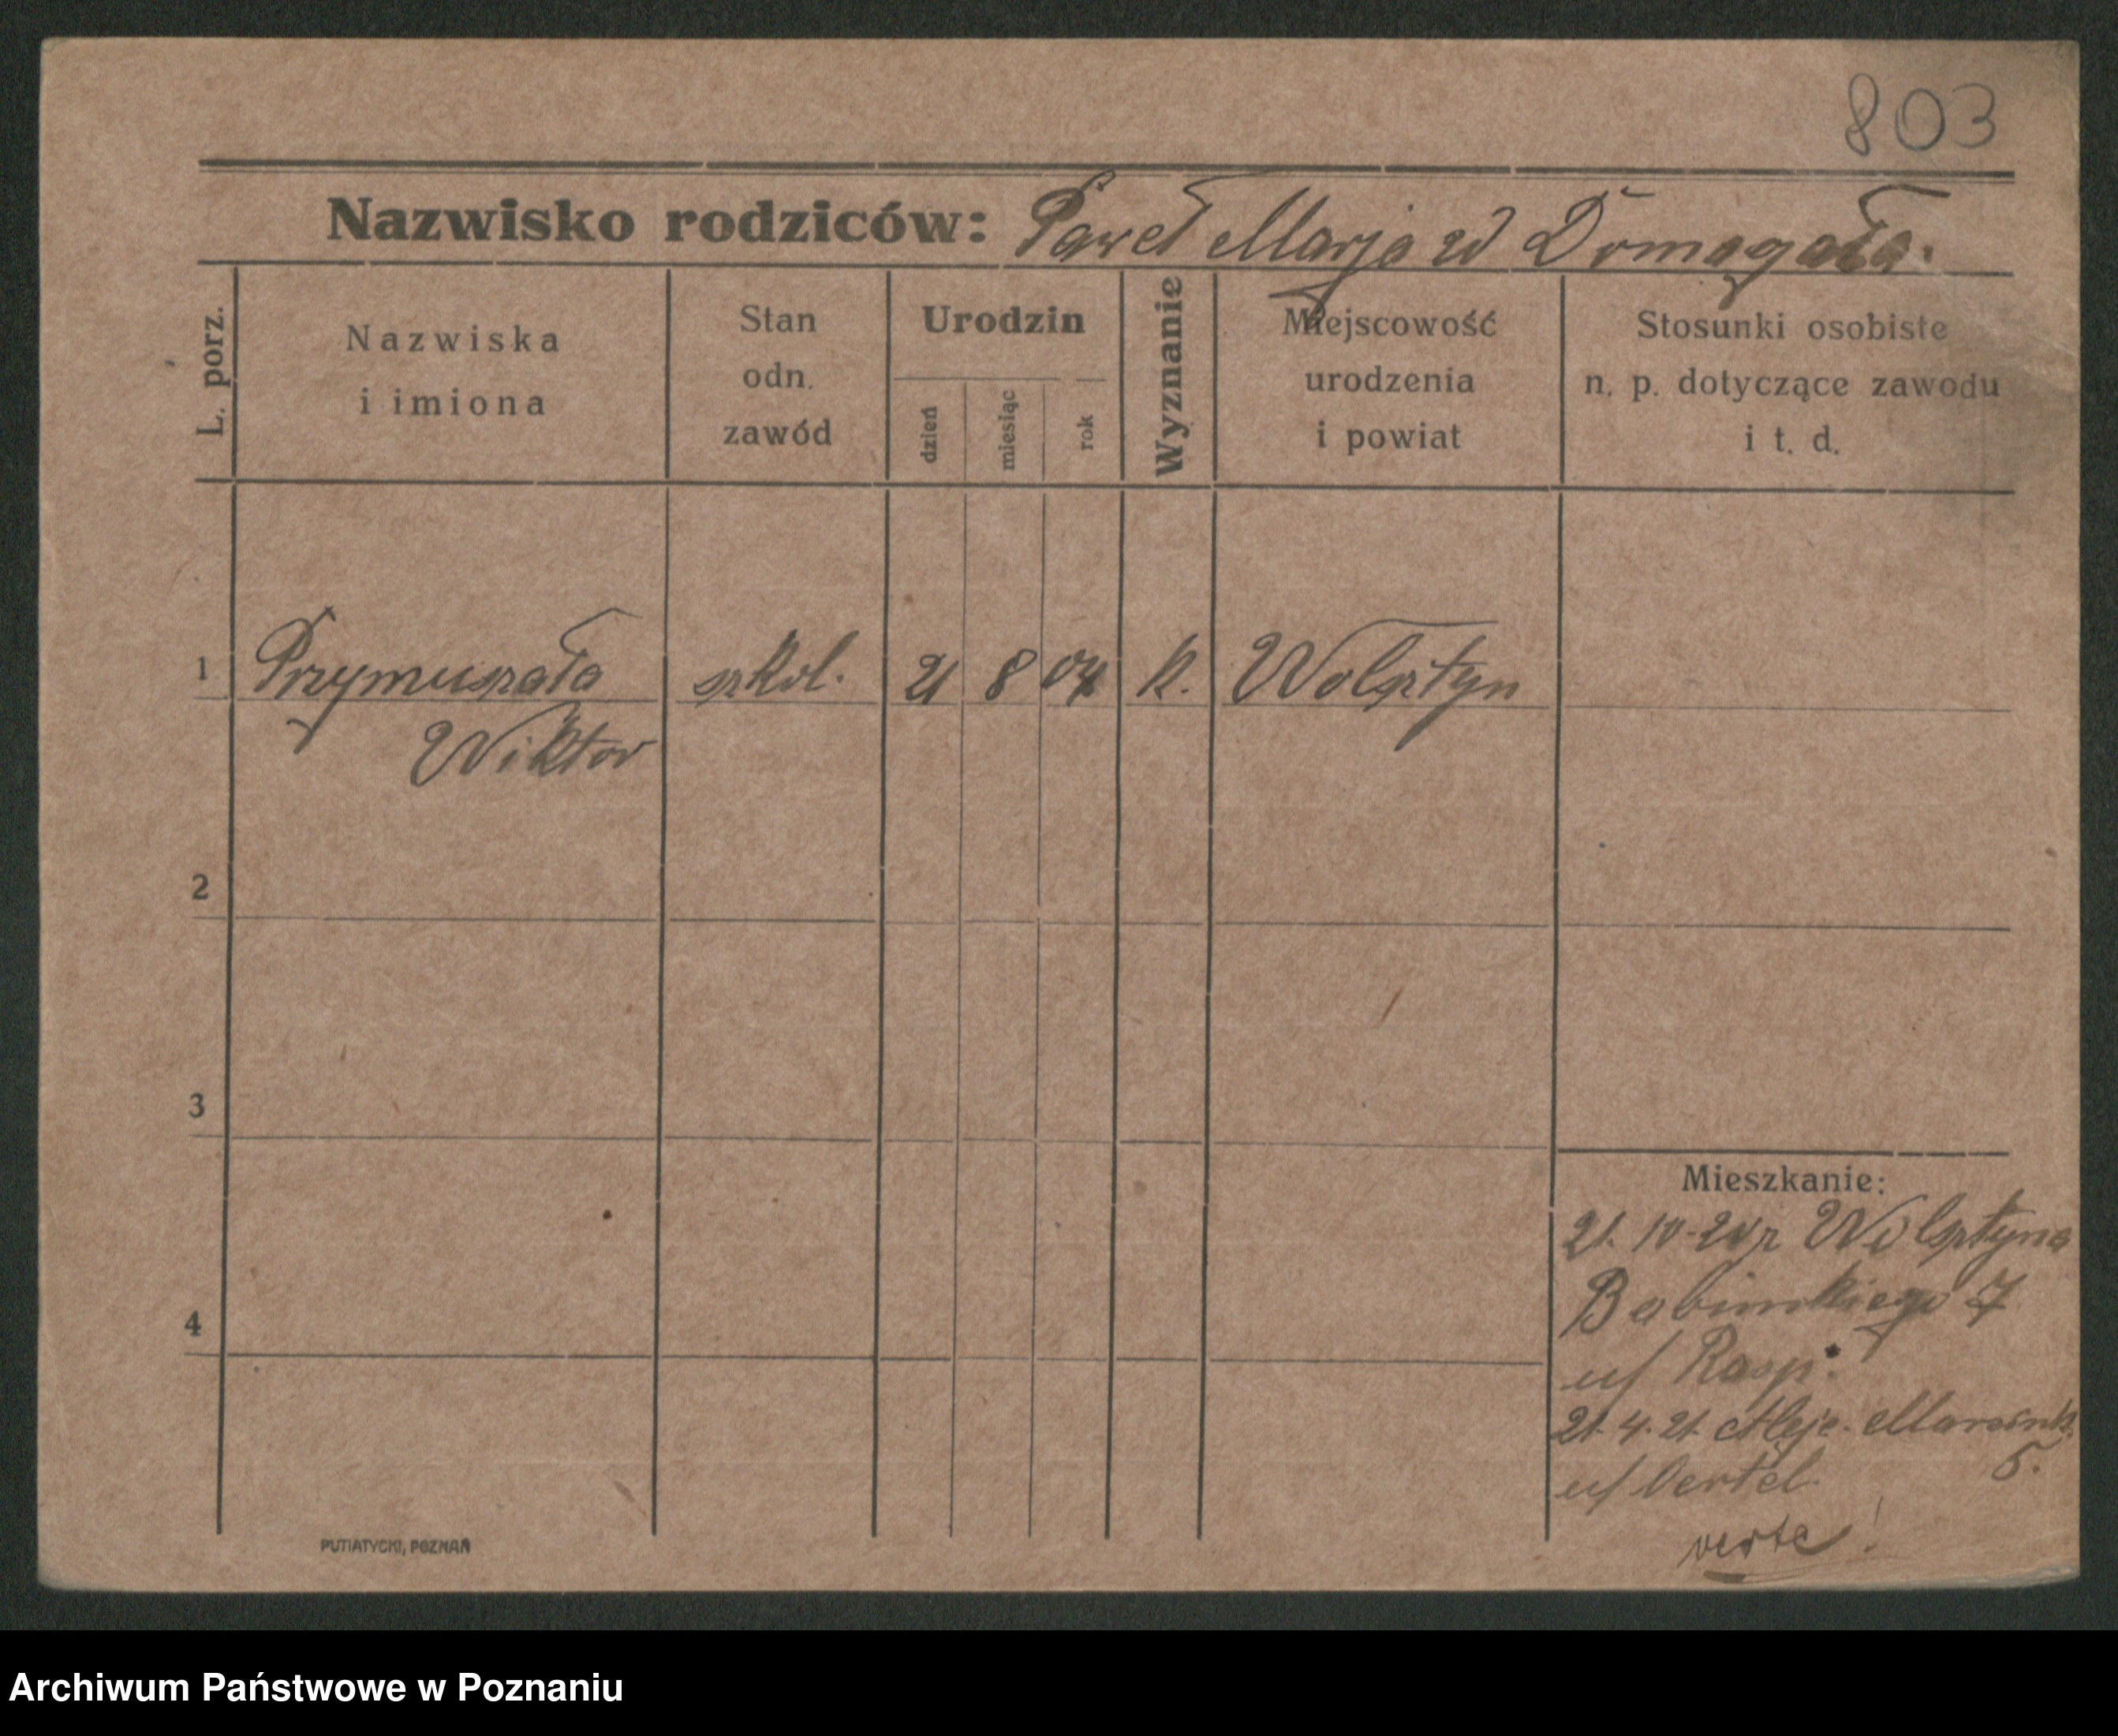 803
Nazwisko rodziców: Paweł Marja zd Domagała.
L. porz.
Nazwiska
i imiona
Stan
odn.
zawód
Urodzin
dzień
miesiąc
rok
Wyznanie
Miejscowość
urodzenia
i powiat
Stosunki osobiste
n. p. dotyczące zawodu
i t. d.
1 Przymuszała szkol. 21 8 04 k. Wolsztyn
Wiktor
2
3
4
Mieszkanie:
21. 10-20 z Wolsztyna
Babimskiego 7
u/
21. 4. 21. Aleje. Marcink.
5.
u/ Oertel.
verte!
PUTIATYCKI, POZNAŃ
Archiwum Państwowe w Poznaniu